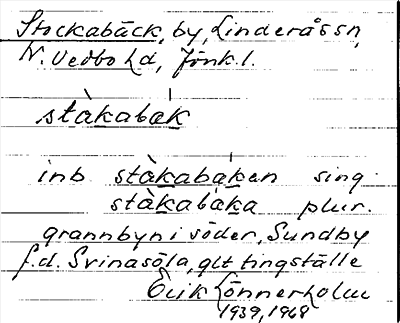 Stockabäck, by, Linderås sn,
N. Vedbo hd, Jönk. l.
stàkabàk
inb stàkabàken sing.
stàkabàka plur.
grannbyn i söder, Sundby
f.d. Svinasöla, glt tingställe
Erik Lönnerholm
1939, 1968